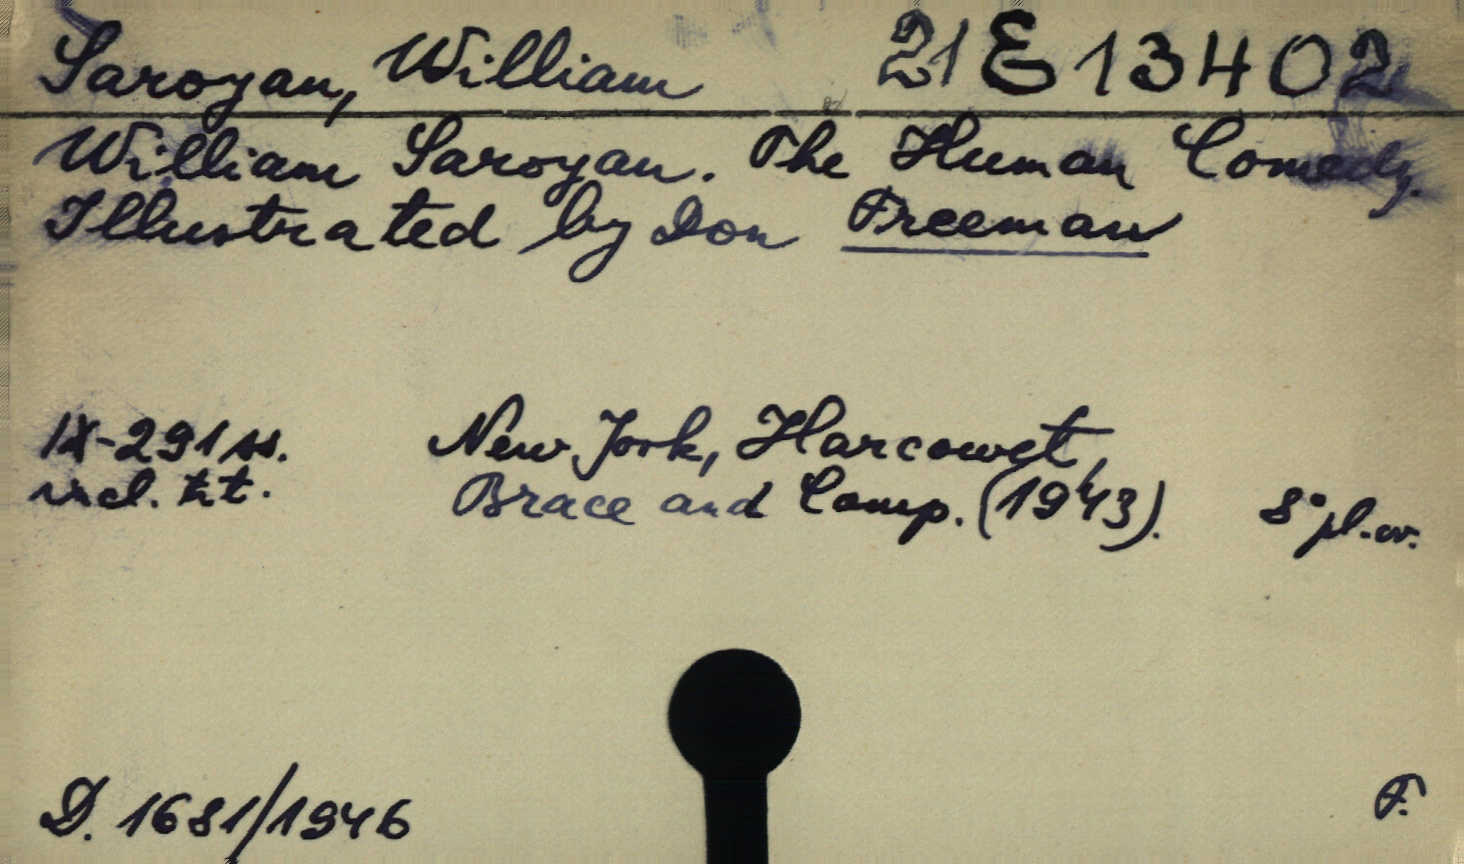 Saroyan, William 21 E 13402
William Saroyan. The Human Comedy.
Illustrated by Don Freeman
IX-291 ss. New York, Harcowet,
incl. tit. Brace and Comp. (1943). 8° pl. cv.
D. 1681/1946 F.